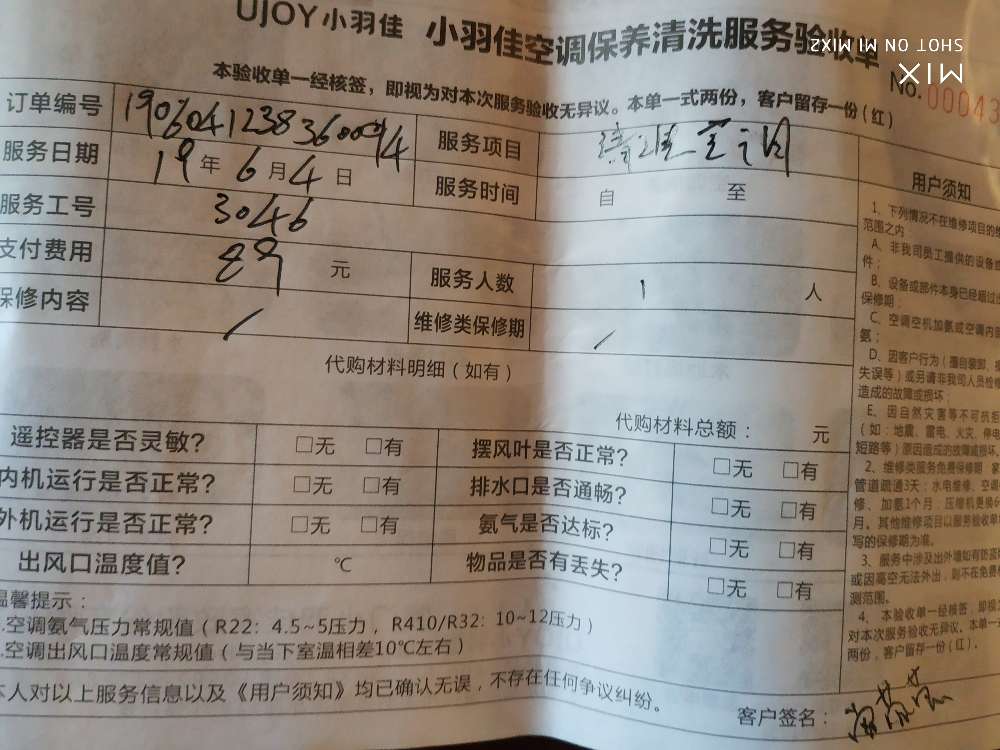 UJOY小羽佳 小羽佳空调保养清洗服务验收单
SHOT ON MI MIX2
MIX
本验收单一经核签，即视为对本次服务验收无异议。本单一式两份，客户留存一份(红)
No. 00043
订单编号
服务项目 清洗空调
服务日期 19年6月4日
服务时间 自 至
服务工号 3046
支付费用 元
服务人数 1 人
保修内容 /
维修类保修期 /
代购材料明细（如有）
代购材料总额： 元
遥控器是否灵敏？ □无 □有
摆风叶是否正常？ □无 □有
内机运行是否正常？ □无 □有
排水口是否通畅？ □无 □有
外机运行是否正常？ □无 □有
氨气是否达标？ □无 □有
出风口温度值？ ℃
物品是否有丢失？ □无 □有
温馨提示：
.空调氨气压力常规值（R22：4.5~5压力，R410/R32：10~12压力）
.空调出风口温度常规值（与当下室温相差10℃左右）
本人对以上服务信息以及《用户须知》均已确认无误，不存在任何争议纠纷。
客户签名：
用户须知
1、下列情况不在维修项目的维
范围之内：
A、非我司员工提供的设备或
件；
B、设备或部件本身已经超过
保修期；
C、空调空机加氨或空调内
氨；
D、因客户行为（擅自装卸、
失误等）或另请非我司人员检
造成的故障或损坏；
E、因自然灾害等不可抗
（如：地震、雷电、火灾、停电
短路等）原因造成的故障或损坏。
2、维修类服务免费保修期：
管道疏通3天；水电维修、空调
修、加氨1个月；压缩机更换
月。其他维修项目以服务验收单
写的保修期为准。
3、服务中涉及出外墙如有防盗
或因高空无法外出，则不在免费
测范围。
4、本验收单一经核签，即视
对本次服务验收无异议。本单一
两份，客户留存一份（红）。